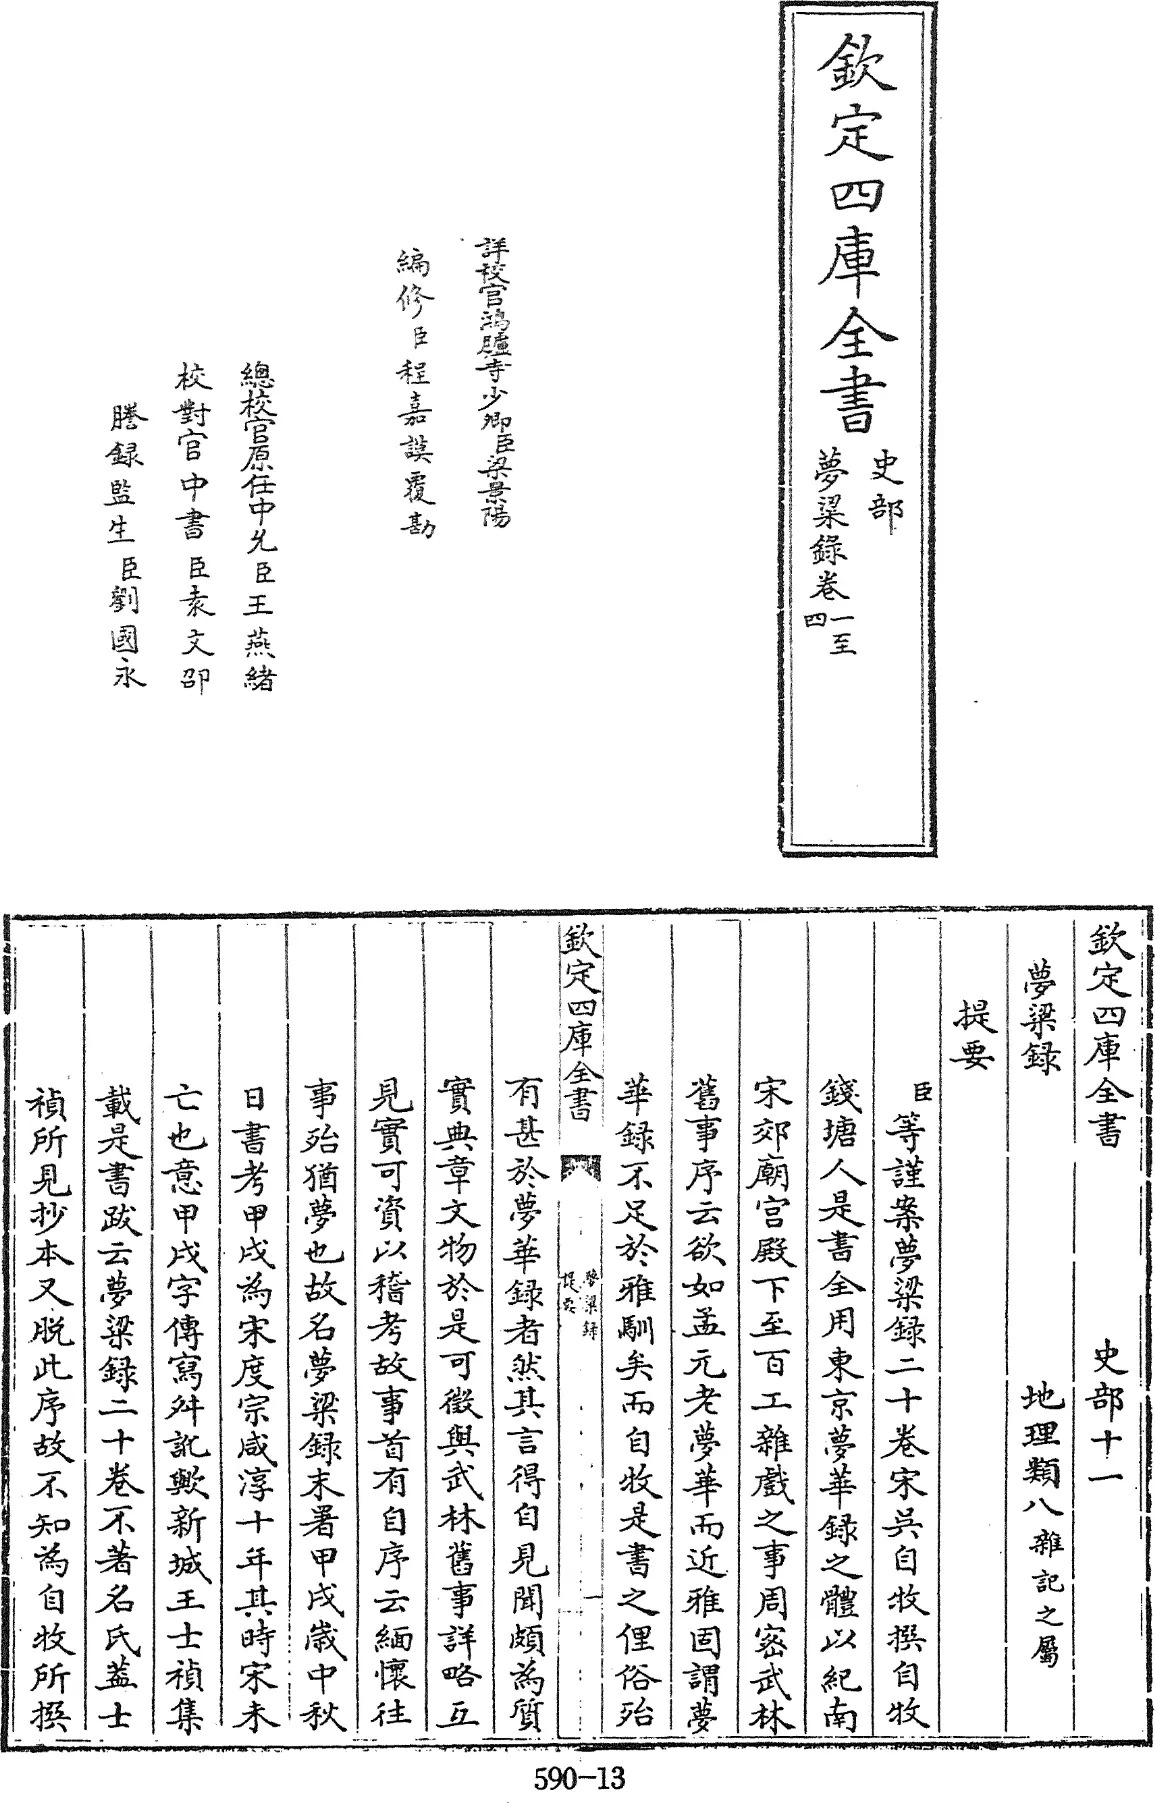 欽定四庫全書
史部
夢粱錄卷一至四
詳校官鴻臚寺少卿臣梁景陽
編修臣程嘉謨覆勘
總校官原任中允臣王燕緒
校對官中書臣袁文邵
謄録監生臣劉國永
欽定四庫全書 史部十一
夢粱録 地理類八雜記之屬
提要
臣等謹案夢粱録二十卷宋吳自牧撰自牧
錢塘人是書全用東京夢華録之體以紀南
宋郊廟宫殿下至百工雜戲之事周宻武林
舊事序云欲如孟元老夢華而近雅固謂夢
華録不足於雅馴矣而自牧是書之俚俗殆
欽定四庫全書
夢粱録
提要
一
有甚於夢華録者然其言得自見聞頗為質
實典章文物於是可徵與武林舊事詳略互
見實可資以稽考故事首有自序云緬懷往
事殆猶夢也故名夢粱録末署甲戌歲中秋
日書考甲戌為宋度宗咸淳十年其時宋未
亡也意甲戌字傳寫舛訛歟新城王士禎集
載是書跋云夢粱録二十卷不著名氏葢士
禎所見抄本又脱此序故不知為自牧所撰
590-13